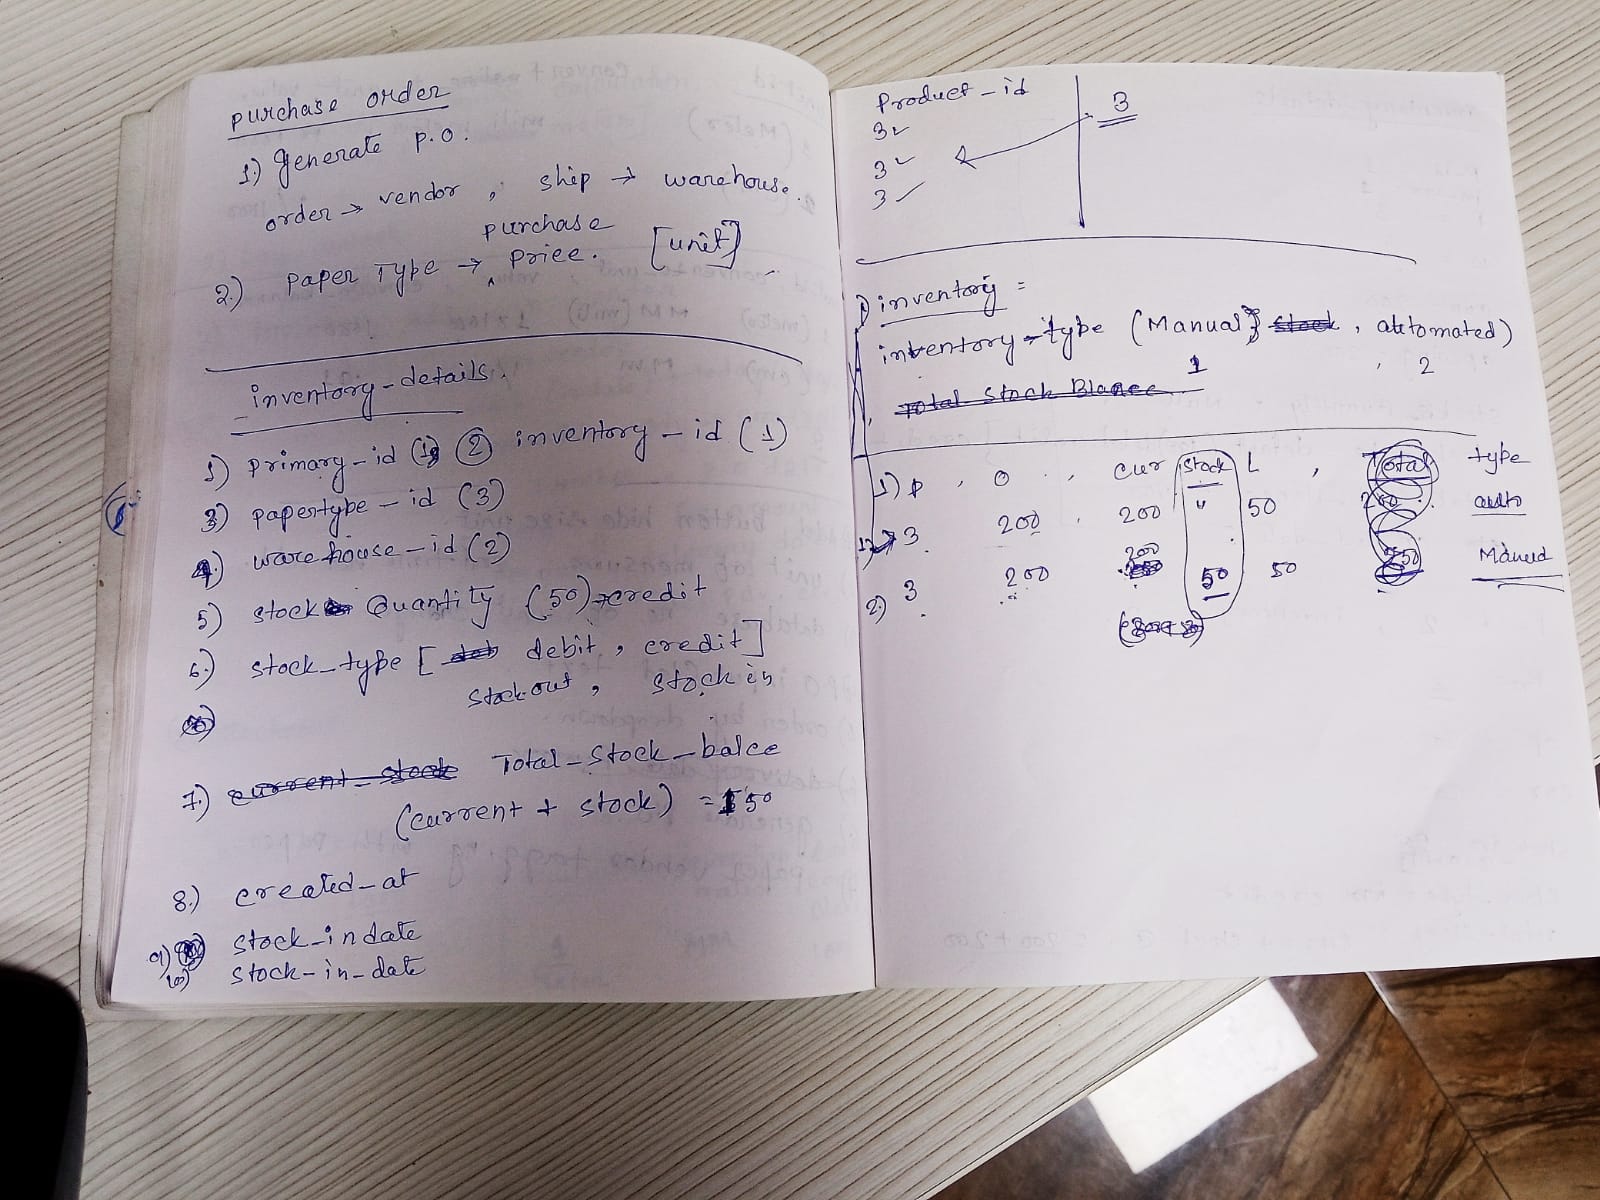 purchase order
1.) Generate P.O.
order → vendor , ship → warehouse.
purchase
2.) Paper Type → price. [unit]
inventory-details.
1) primary-id (1) ② inventory-id (1)
3) papertype-id (3)
4) warehouse-id (2)
5) stock Quantity (50) → credit
6.) stock_type [ debit , credit]
stock out , stock in
7.) current-stock Total_stock_balce
(current + stock) = 150
8.) created-at
9) stock-indate
10) stock-in-date
Product-id
3
3
3
3
1) inventory =
inventory-type (Manual} stock , automated)
1 , 2
Total Stock Blance
1) P , O , cur stock L , Total type
1) 3. 200 , 200 " 50 auto
200
2.) 3 200 50 50 Manual